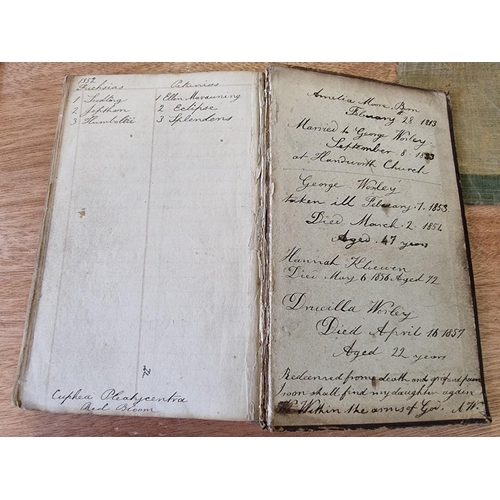 1852
Fuchsias
1 Sidling
2 Jepthon
3 Humboltii
Petunias
1 Ellen Mavauning
2 Eclipse
3 Splendens
Cuphea Pleatycentra
Red Bloom
Amelia Born
February 28 1813
Married to George Worley
September 8 1833
at Handsworth Church
George Worley
taken ill February 7. 1853
Died March 2. 1854
Aged 47 years
Hannah
Died May 6 1856 Aged 72
Drucilla Worley
Died April 16 1857
Aged 22 years
Redeemed frome death and grief and pain
soon shall find my daughter again
Within the arms of God. A W